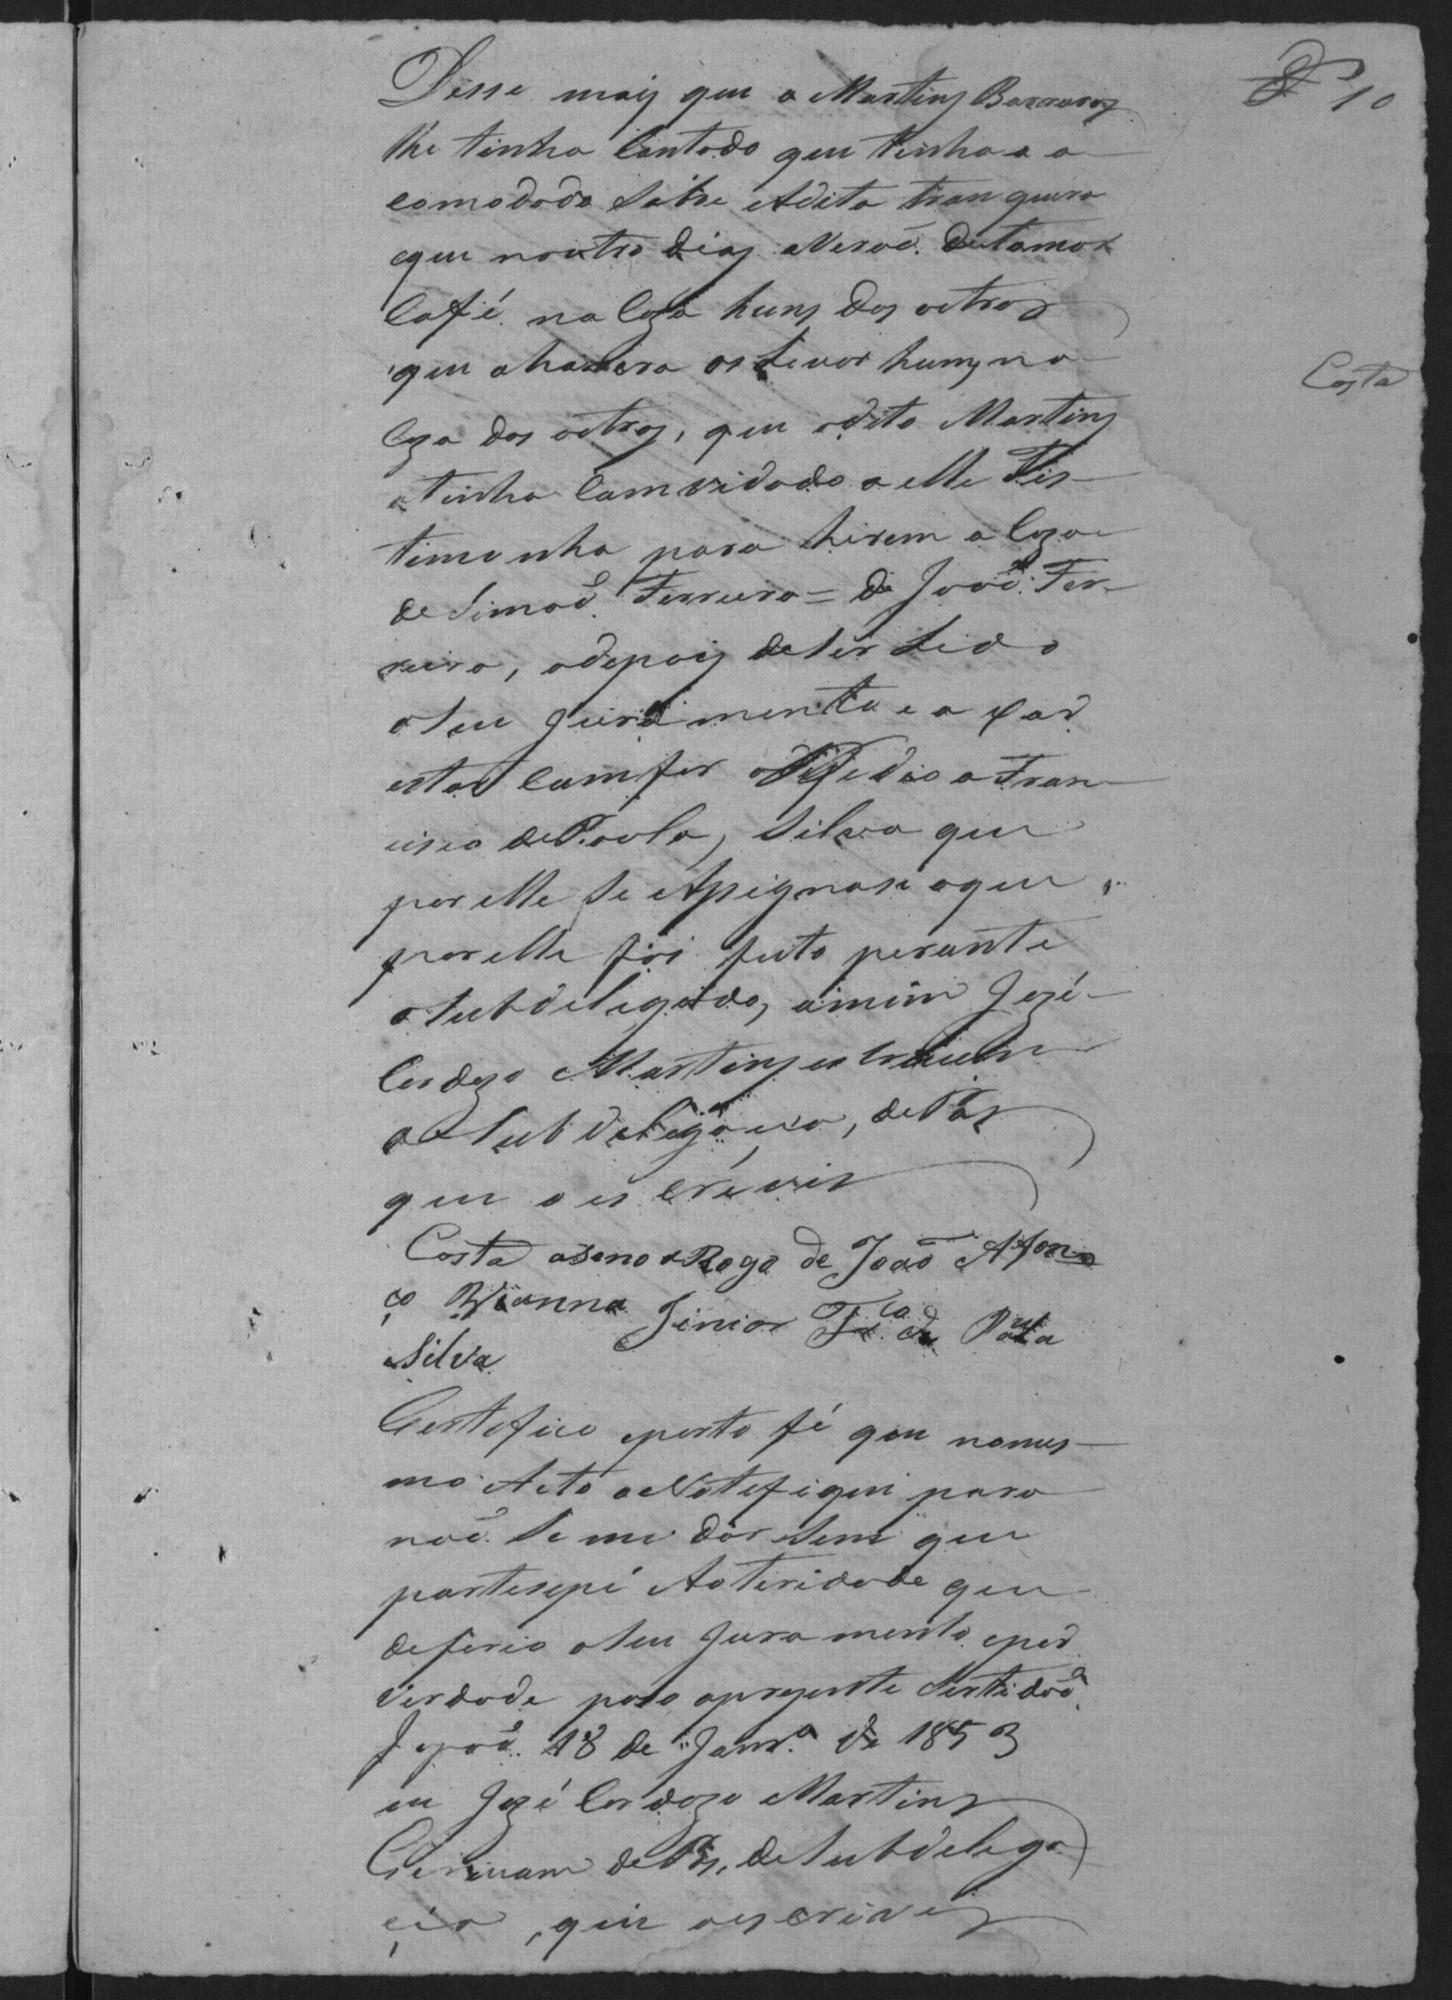 10
Disse mais que o Martins Barraros
lhe tinha Contado que tinha a a
comodado Sobre Adita tranqueira
que noutro dias averaõ. detomar
Café na Caza huns dos outros
que ahar os huns na
Caza dos outros, que odito Martins
atinha Comvidado a elle Tes-
timunha para hirem a Caza
de Simaõ Ferreira = de Joaõ Fer-
reira, adepois deler Lido
oseu Juramento e a xar
estar Comfor Pedio a Fran-
cisco de Paola, Silva que
por elle Se Assignase oque
por elle foi feito perante
oSubdeligado, amim Jozé
Cardozo Martins escrivam
a Subdelegacia, de Pas
que o es crévis
Costa
Costa aseno a Rogo de João Afon
ço Vianna Junior Fr.co de Paula
Silva
Certefico eporto fé que nomes-
mo Acto oNotefiquei para
naõ Se mudar Sem que
partesepé Autoridade que
deferio oSeu Juramento epor
verdade paso aprezente Sertidaõ
18 de Janr.o de 1853
eu Jozé Cardozo Martins
Escrivam de Pas, de Subdelega
cia, que oescrivis